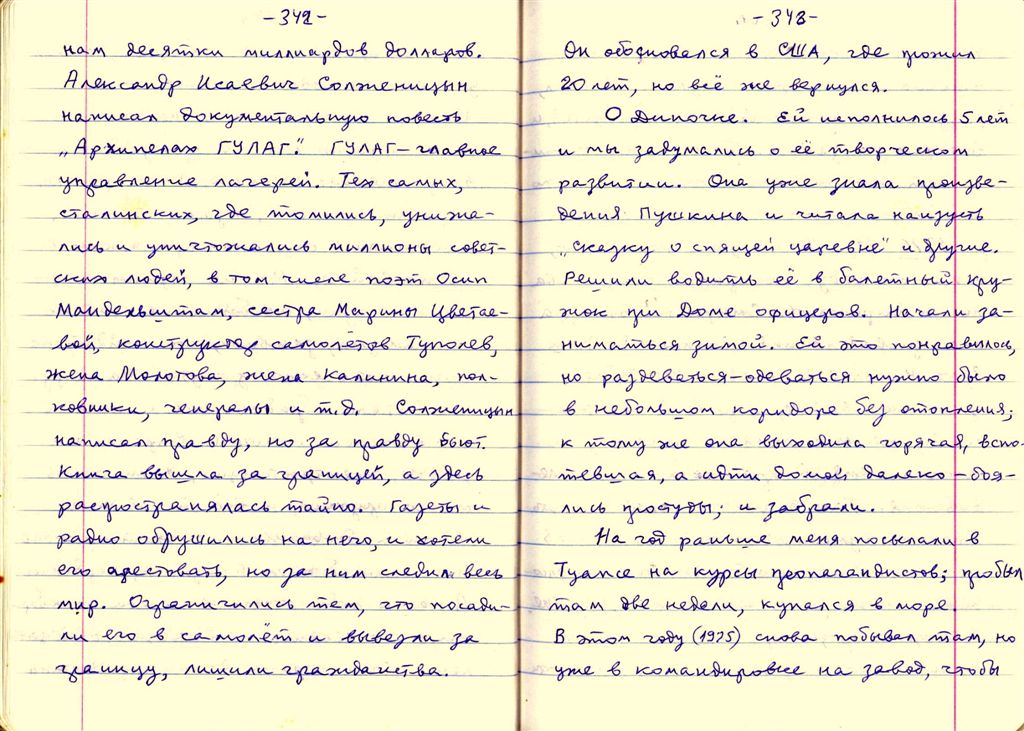 -342-
нам десятки миллиардов долларов.
Александр Исаевич Солженицын
написал документальную повесть
„Архипелах ГУЛАГ." ГУЛАГ-главное
управление лагерей. Тех самых,
сталинских, где томились, унижа-
лись и уничтожались миллионы совет-
ских людей, в том числе поэт Осип
Мандельштам, сестра Марины Цветае-
вой, конструктор самолётов Туполев,
жена Молотова, жена Калинина, пол-
ковники, генералы и т.д. Солженицын
написал правду, но за правду бьют.
Книга вышла за границей, а здесь
распространялась тайно. Газеты и
радио обрушились на него, и хотели
его арестовать, но за ним следил весь
мир. Ограничились тем, что посади-
ли его в самолёт и вывезли за
границу, лишили гражданства.
-343-
Он обосновался в США, где прожил
20 лет, но всё же вернулся.
О Диночке. Ей исполнилось 5 лет
и мы задумались о её творческом
развитии. Она уже знала произве-
дения Пушкина и читала наизусть
„Сказку о спящей царевне" и другие.
Решили водить её в балетный кру-
жок при Доме офицеров. Начали за-
ниматься зимой. Ей это понравилось,
но раздеваться-одеваться нужно было
в небольшом коридоре без отопления;
к тому же она выходила горячая, вспо-
тевшая, а идти домой далеко - боя-
лись простуды; и забрали.
На год раньше меня посылали в
Туапсе на курсы пропагандистов; пробыл
там две недели, купался в море.
В этом году (1975) снова побывал там, но
уже в командировке на завод, чтобы